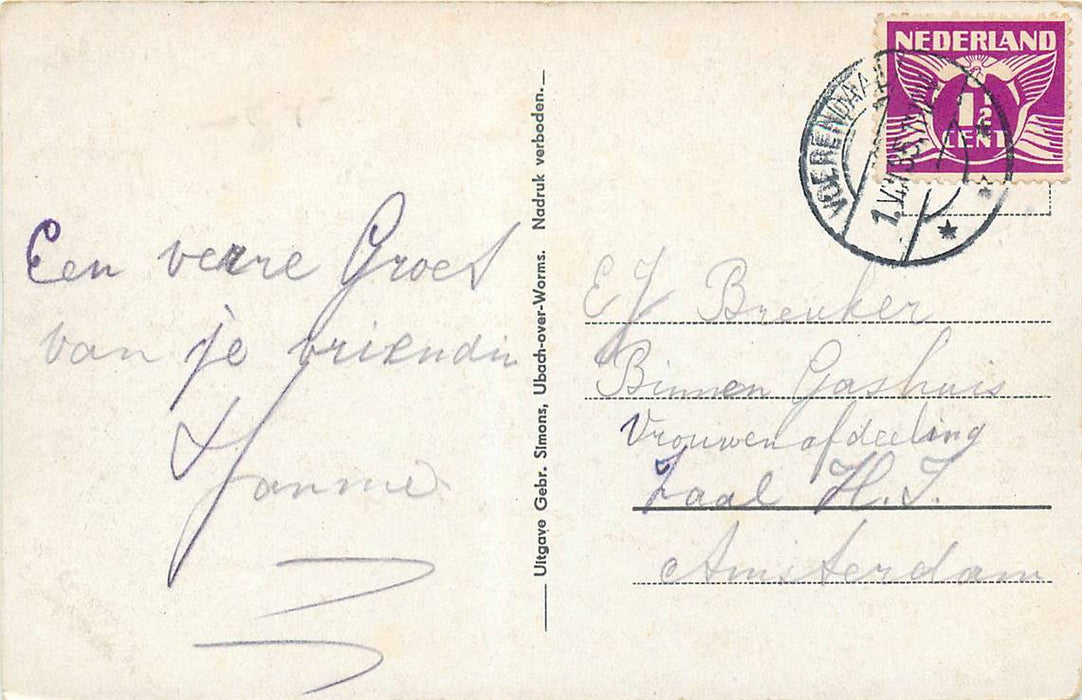 Een verre Groet
van je vriendin
Hannie
Uitgave Gebr. Simons, Ubach-over-Worms. Nadruk verboden.
NEDERLAND
1½
CENT
VOERENDAAL
E J Breuker
Binnen Gashuis
Vrouwen afdeeling
Zaal H. J.
Amsterdam